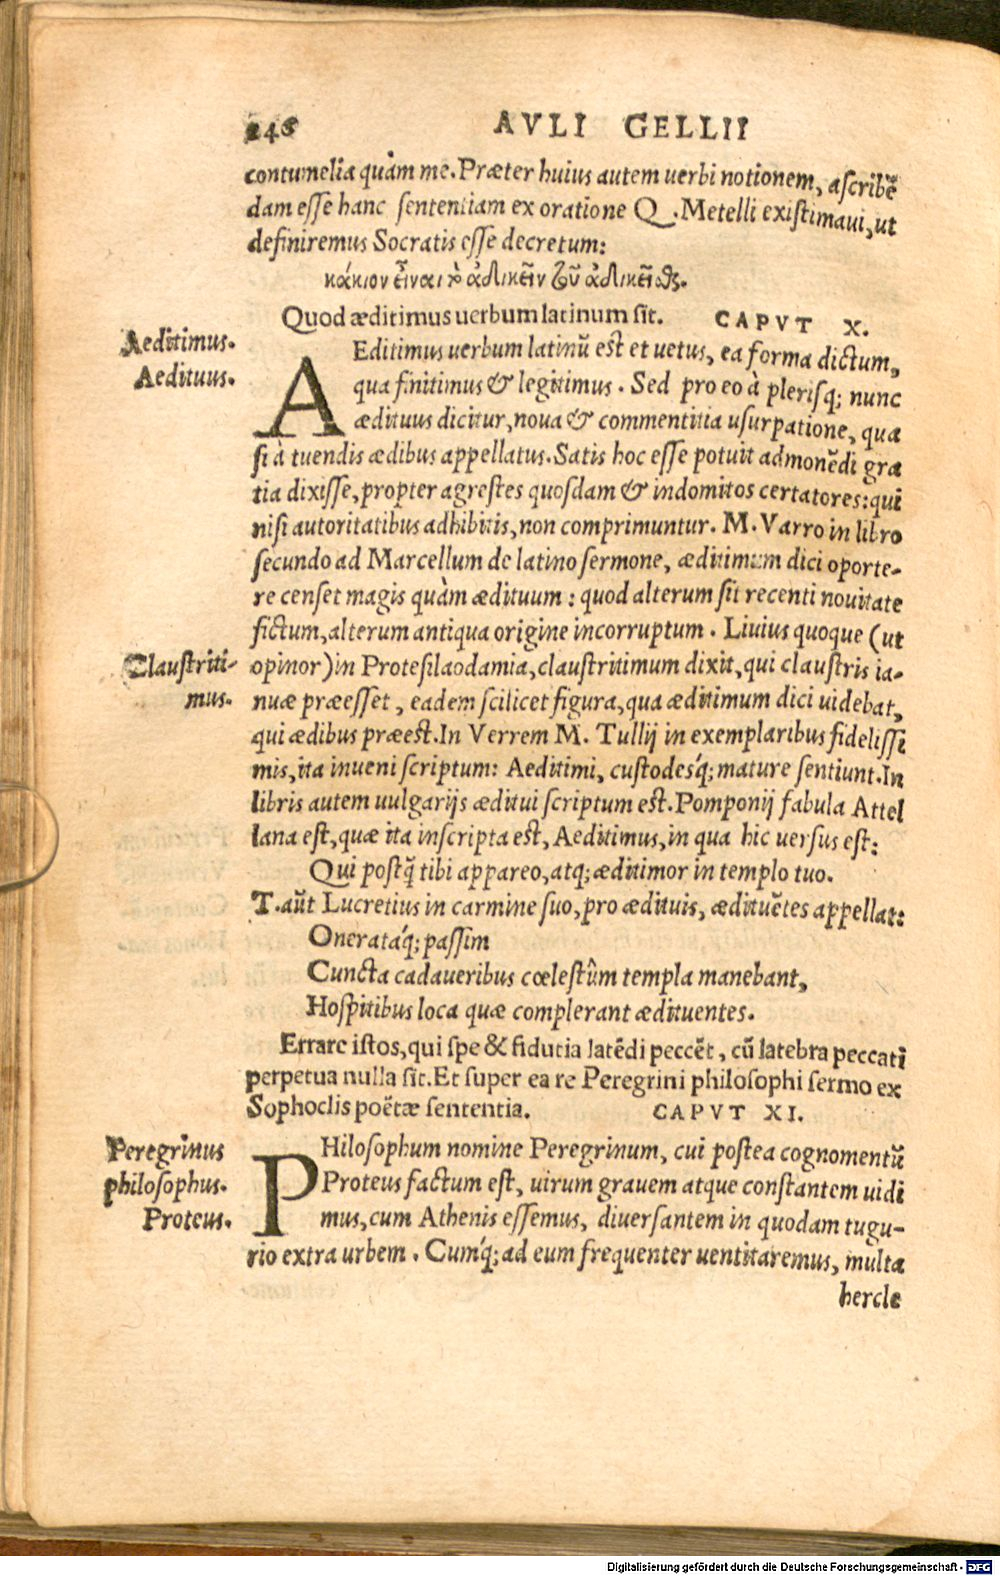 246 AVLI GELLII
contumelia quàm me. Præter huius autem uerbi notionem, ascribẽ
dam esse hanc sententiam ex oratione Q. Metelli existimaui, ut
definiremus Socratis esse decretum:
κάκιον εἶναι τὸ ἀδικεῖν τοῦ ἀδικεῖσθαι.
Quod æditimus uerbum latinum sit. CAPVT X.
Aeditimus.
Aedituus.
AEditimus uerbum latinũ est et uetus, ea forma dictum,
qua finitimus & legitimus. Sed pro eo à plerisq; nunc
ædituus dicitur, noua & commentitia usurpatione, qua
si à tuendis ædibus appellatus. Satis hoc esse potuit admonẽdi gra
tia dixisse, propter agrestes quosdam & indomitos certatores: qui
nisi autoritatibus adhibitis, non comprimuntur. M. Varro in libro
secundo ad Marcellum de latino sermone, æditimum dici oporte-
re censet magis quàm ædituum: quod alterum sit recenti nouitate
fictum, alterum antiqua origine incorruptum. Liuius quoque (ut
Claustriti-
mus.
opinor) in Protesilaodamia, claustritimum dixit, qui claustris ia-
nuæ præesset, eadem scilicet figura, qua æditimum dici uidebat,
qui ædibus præest. In Verrem M. Tullij in exemplaribus fidelissi
mis, ita inueni scriptum: Aeditimi, custodesq́; mature sentiunt. In
libris autem uulgarijs æditui scriptum est. Pomponij fabula Attel
lana est, quæ ita inscripta est, Aeditimus, in qua hic uersus est:
Qui postq̃ tibi appareo, atq; æditimor in templo tuo.
T. aũt Lucretius in carmine suo, pro ædituis, ædituẽtes appellat:
Onerataq́; passim
Cuncta cadaueribus cœlestûm templa manebant,
Hospitibus loca quæ complerant ædituentes.
Errare istos, qui spe & fiducia latẽdi peccẽt, cũ latebra peccati
perpetua nulla sit. Et super ea re Peregrini philosophi sermo ex
Sophoclis poëtæ sententia. CAPVT XI.
Peregrinus
philosophus.
Proteus.
PHilosophum nomine Peregrinum, cui postea cognomentũ
Proteus factum est, uirum grauem atque constantem uidi
mus, cum Athenis essemus, diuersantem in quodam tugu-
rio extra urbem. Cumq́; ad eum frequenter uentitaremus, multa
hercle
Digitalisierung gefördert durch die Deutsche Forschungsgemeinschaft - DFG